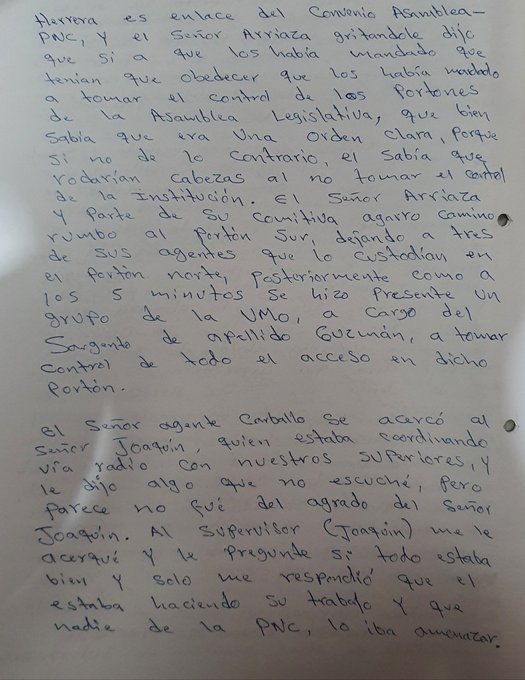 Herrera es enlace del Convenio Asamblea-
PNC, y el Señor Arriaza gritandole dijo
que si a que los había mandado que
tenían que obedecer que los había mandado
a tomar el control de los Portones
de la Asamblea Legislativa, que bien
Sabía que era una orden clara, porque
si no de lo contrario, el sabía que
rodarían cabezas al no tomar el control
de la institución. El Señor Arriaza
y parte de su comitiva agarro camino
rumbo al Portón Sur, dejando a tres
de sus agentes que lo custodian en
el Portón norte, posteriormente como a
los 5 minutos se hizo presente un
grupo de la UMO, a cargo del
Sargento de apellido Guzmán, a tomar
control de todo el acceso en dicho
Portón.
El Señor agente Carballo se acercó al
Señor Joaquín, quien estaba coordinando
vía radio con nuestros superiores, y
le dijo algo que no escuché, pero
parece no fué del agrado del Señor
Joaquín. Al supervisor (Joaquín) me le
acerqué y le pregunte si todo estaba
bien y solo me respondió que el
estaba haciendo su trabajo y que
nadie de la PNC, lo iba amenazar.